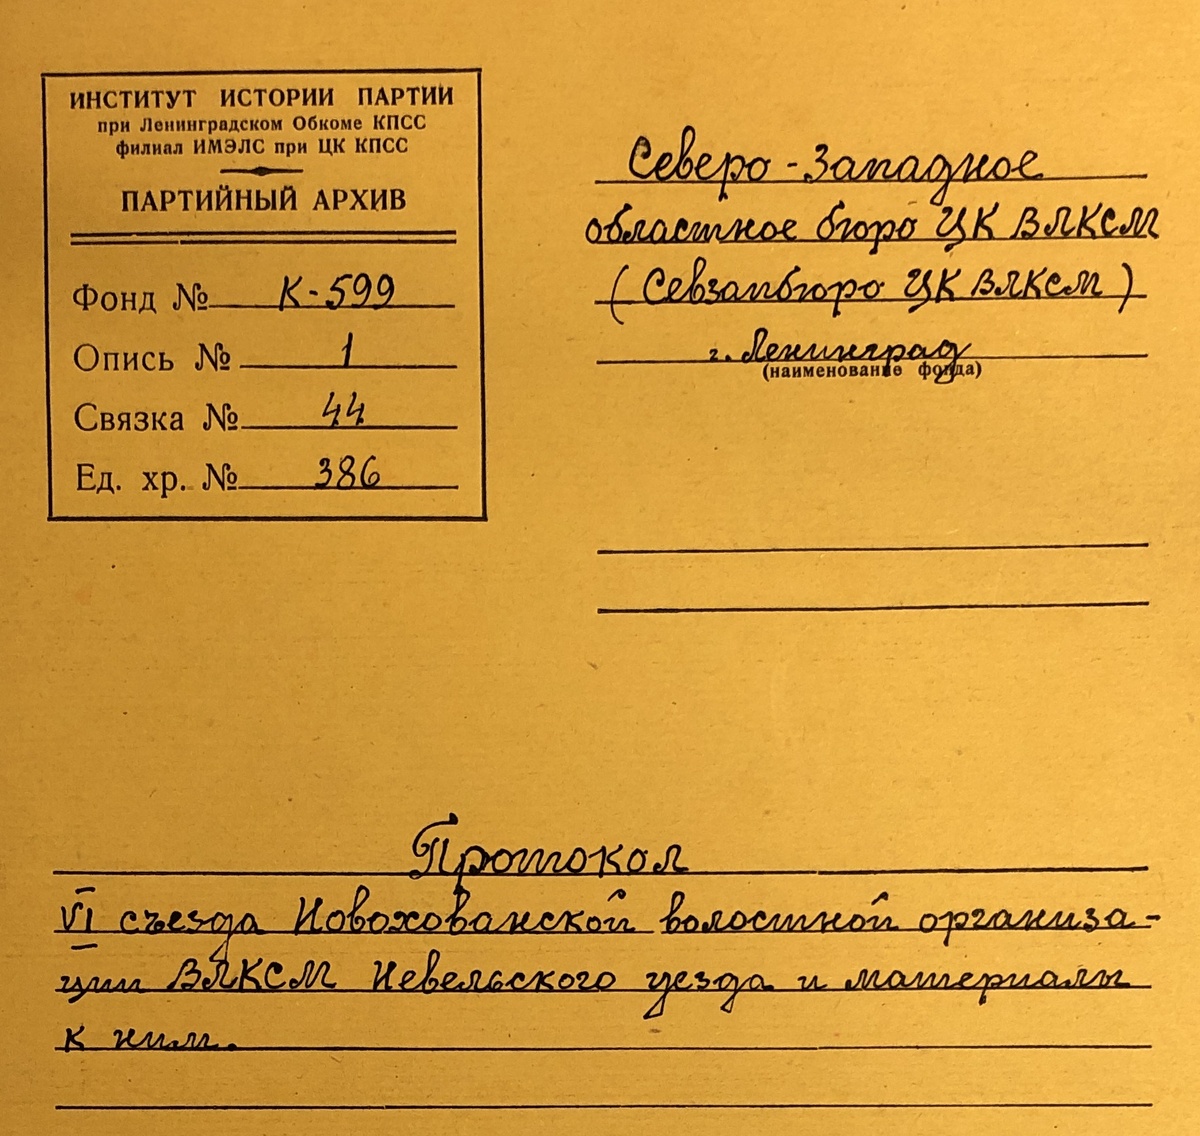 ИНСТИТУТ ИСТОРИИ ПАРТИИ
при Ленинградском Обкоме КПСС
филиал ИМЭЛС при ЦК КПСС
ПАРТИЙНЫЙ АРХИВ
Фонд № К-599
Опись № 1
Связка № 44
Ед. хр. № 386
Северо-Западное
областное бюро ЦК ВЛКСМ
(Севзапбюро ЦК ВЛКСМ)
г. Ленинград
(наименование фонда)
Протокол
VI съезда Новохованской волостной организа-
ции ВЛКСМ Невельского уезда и материалы
к ним.